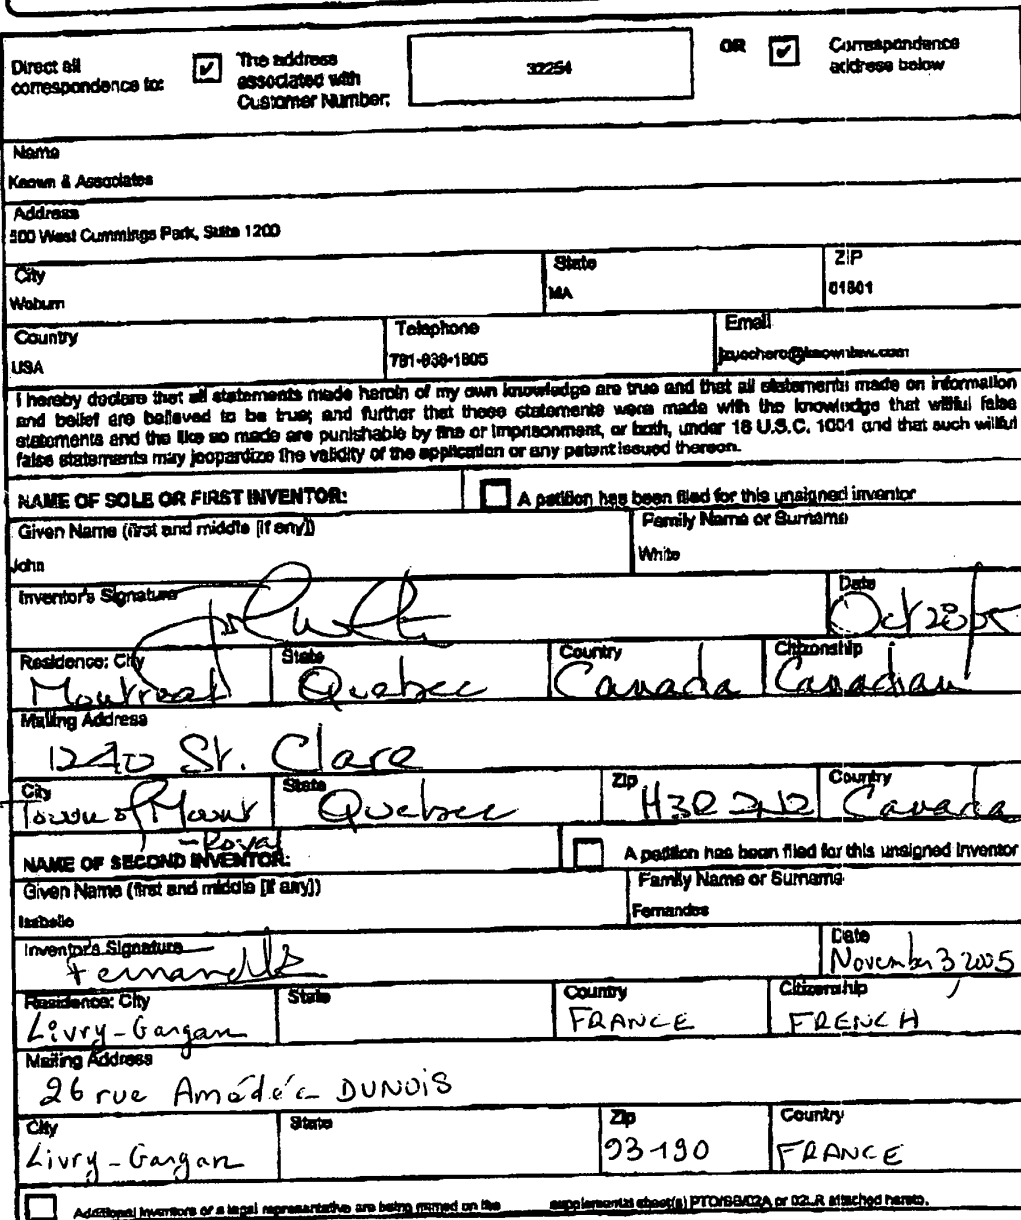 Direct all correspondence to: ☑ The address associated with Customer Number: 32254 OR ☑ Correspondence address below
Name
Keown & Associates
Address
500 West Cummings Park, Suite 1200
City State ZIP
Woburn MA 01801
Country Telephone Email
USA 781-938-1805
I hereby declare that all statements made herein of my own knowledge are true and that all statements made on information
and belief are believed to be true; and further that these statements were made with the knowledge that willful false
statements and the like so made are punishable by fine or imprisonment, or both, under 18 U.S.C. 1001 and that such willful
false statements may jeopardize the validity of the application or any patent issued thereon.
NAME OF SOLE OR FIRST INVENTOR: ☐ A petition has been filed for this unsigned inventor
Given Name (first and middle [if any]) Family Name or Surname
John White
Inventor's Signature Date
Oct 20/05
Residence: City State Country Citizenship
Montreal Quebec Canada Canadian
Mailing Address
1240 St. Clare
City State Zip Country
Town of Mount Quebec Canada
-Royal
NAME OF SECOND INVENTOR: ☐ A petition has been filed for this unsigned inventor
Given Name (first and middle [if any]) Family Name or Surname
Isabelle Fernandes
Inventor's Signature Date
Fernandes November 3 2005
Residence: City State Country Citizenship
Livry-Gargan FRANCE FRENCH
Mailing Address
26 rue Amédée DUNOIS
City State Zip Country
Livry-Gargan 93-190 FRANCE
☐ Additional inventors or a legal representative are being named on the supplemental sheet(s) PTO/SB/02A or 02LR attached hereto.